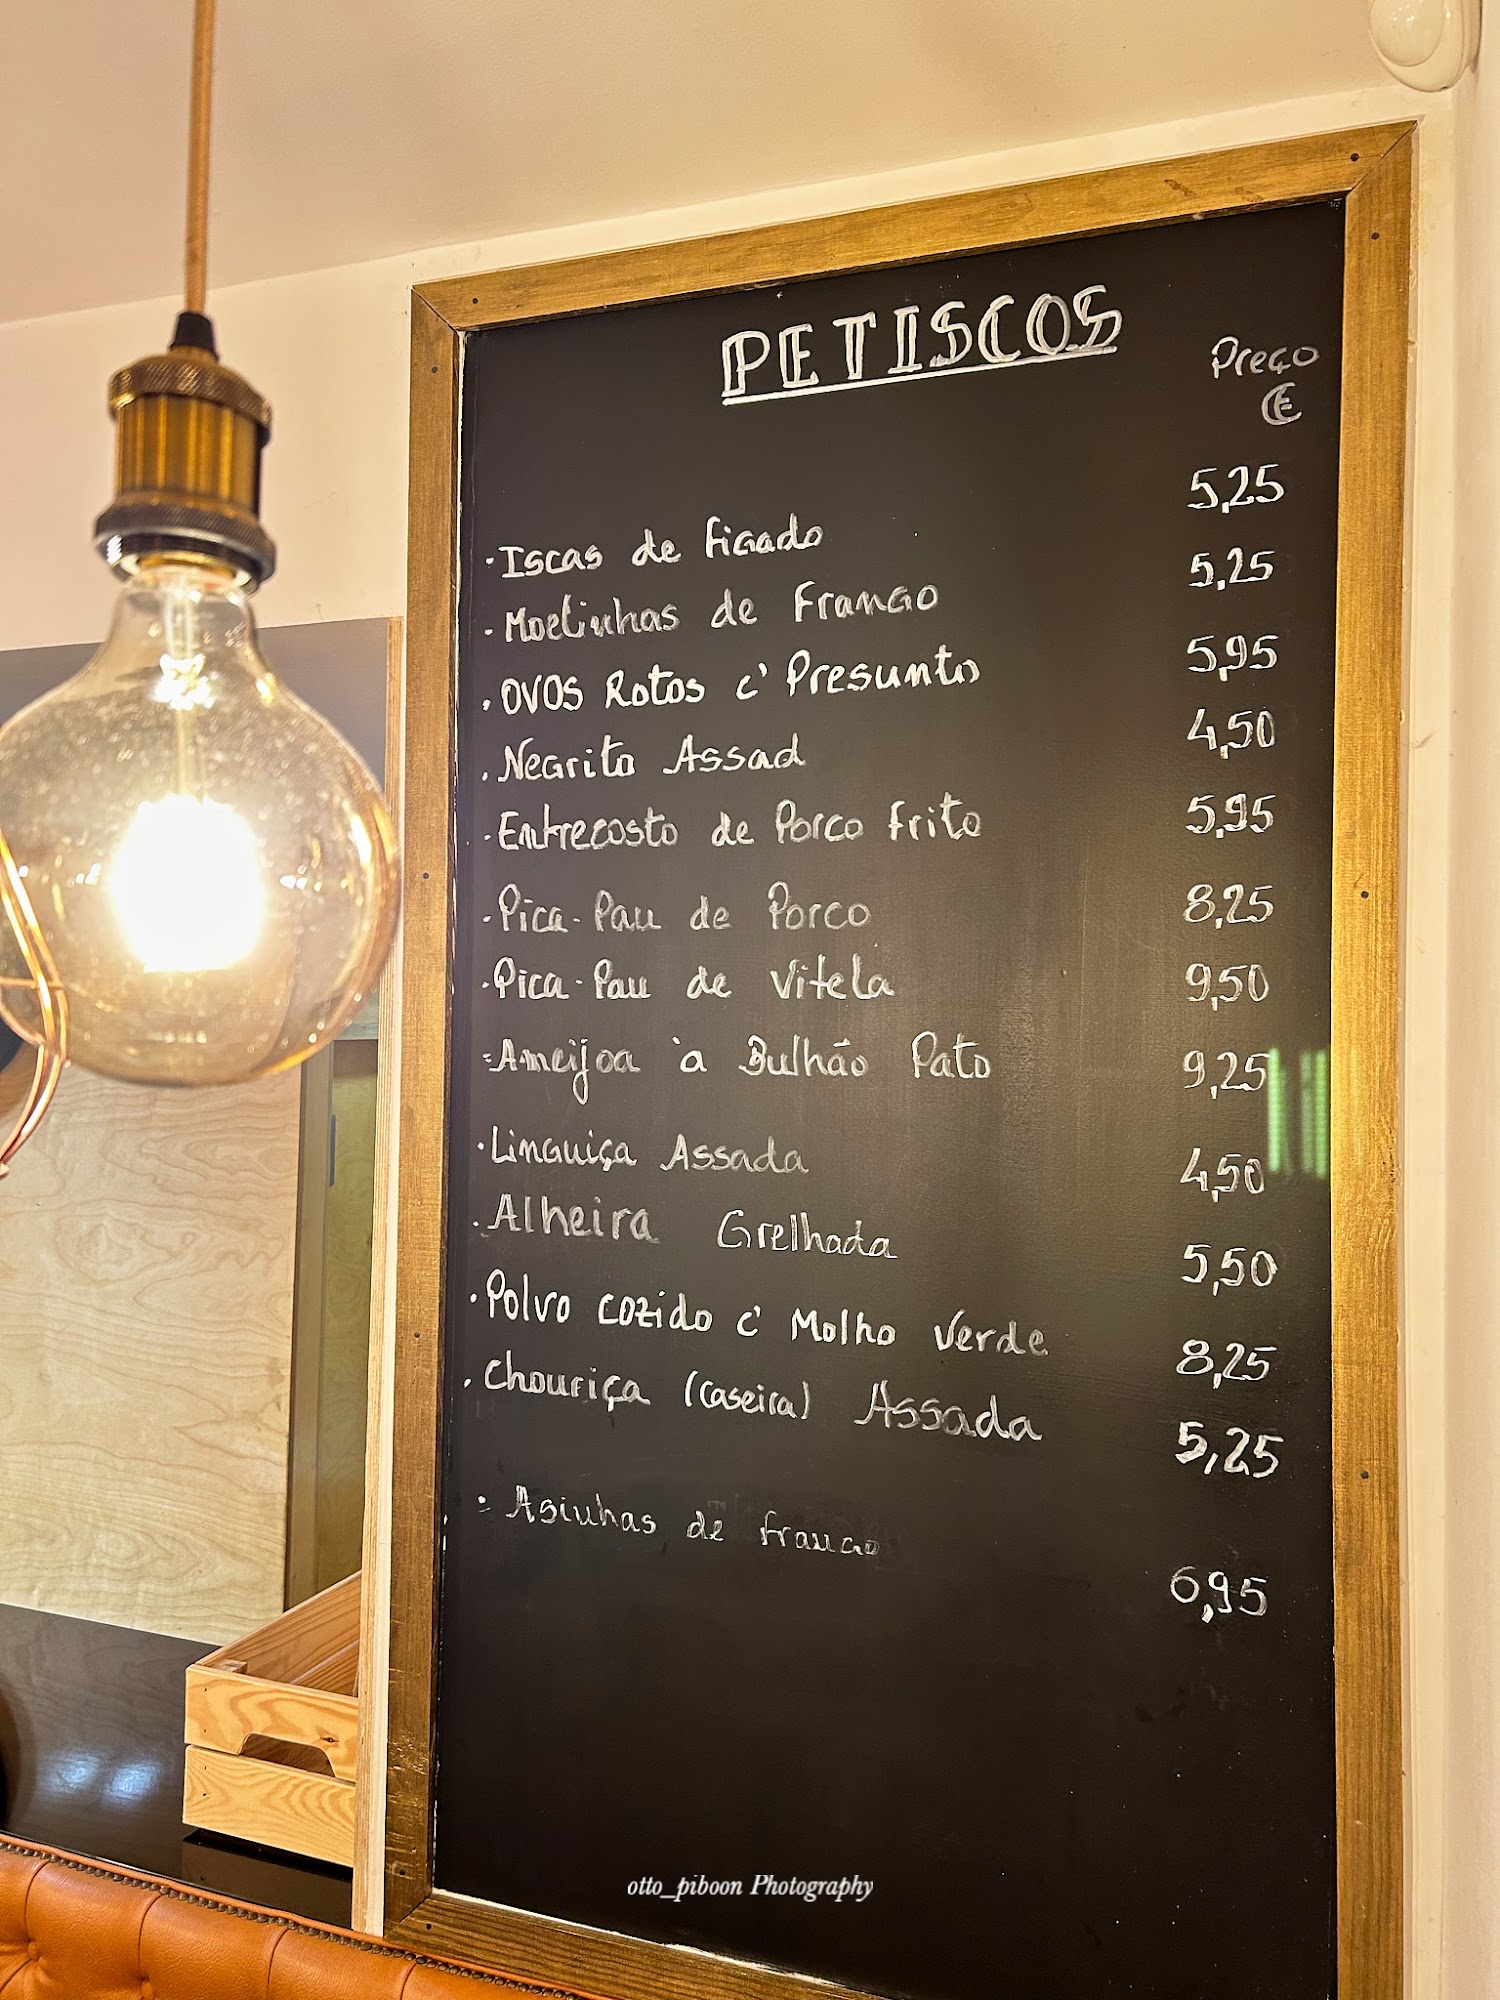 PETISCOS
Preço
€
· Iscas de figado 5,25
· Moelinhas de Frango 5,25
· OVOS Rotos c' Presunto 5,95
· Negrito Assad 4,50
· Entrecosto de Porco frito 5,95
· Pica-Pau de Porco 8,25
· Pica-Pau de Vitela 9,50
· Ameijoa à Bulhão Pato 9,25
· Linguiça Assada 4,50
· Alheira Grelhada 5,50
· Polvo cozido c' Molho Verde 8,25
· Chouriça (caseira) Assada 5,25
· Asinhas de frango 6,95
otto_piboon Photography